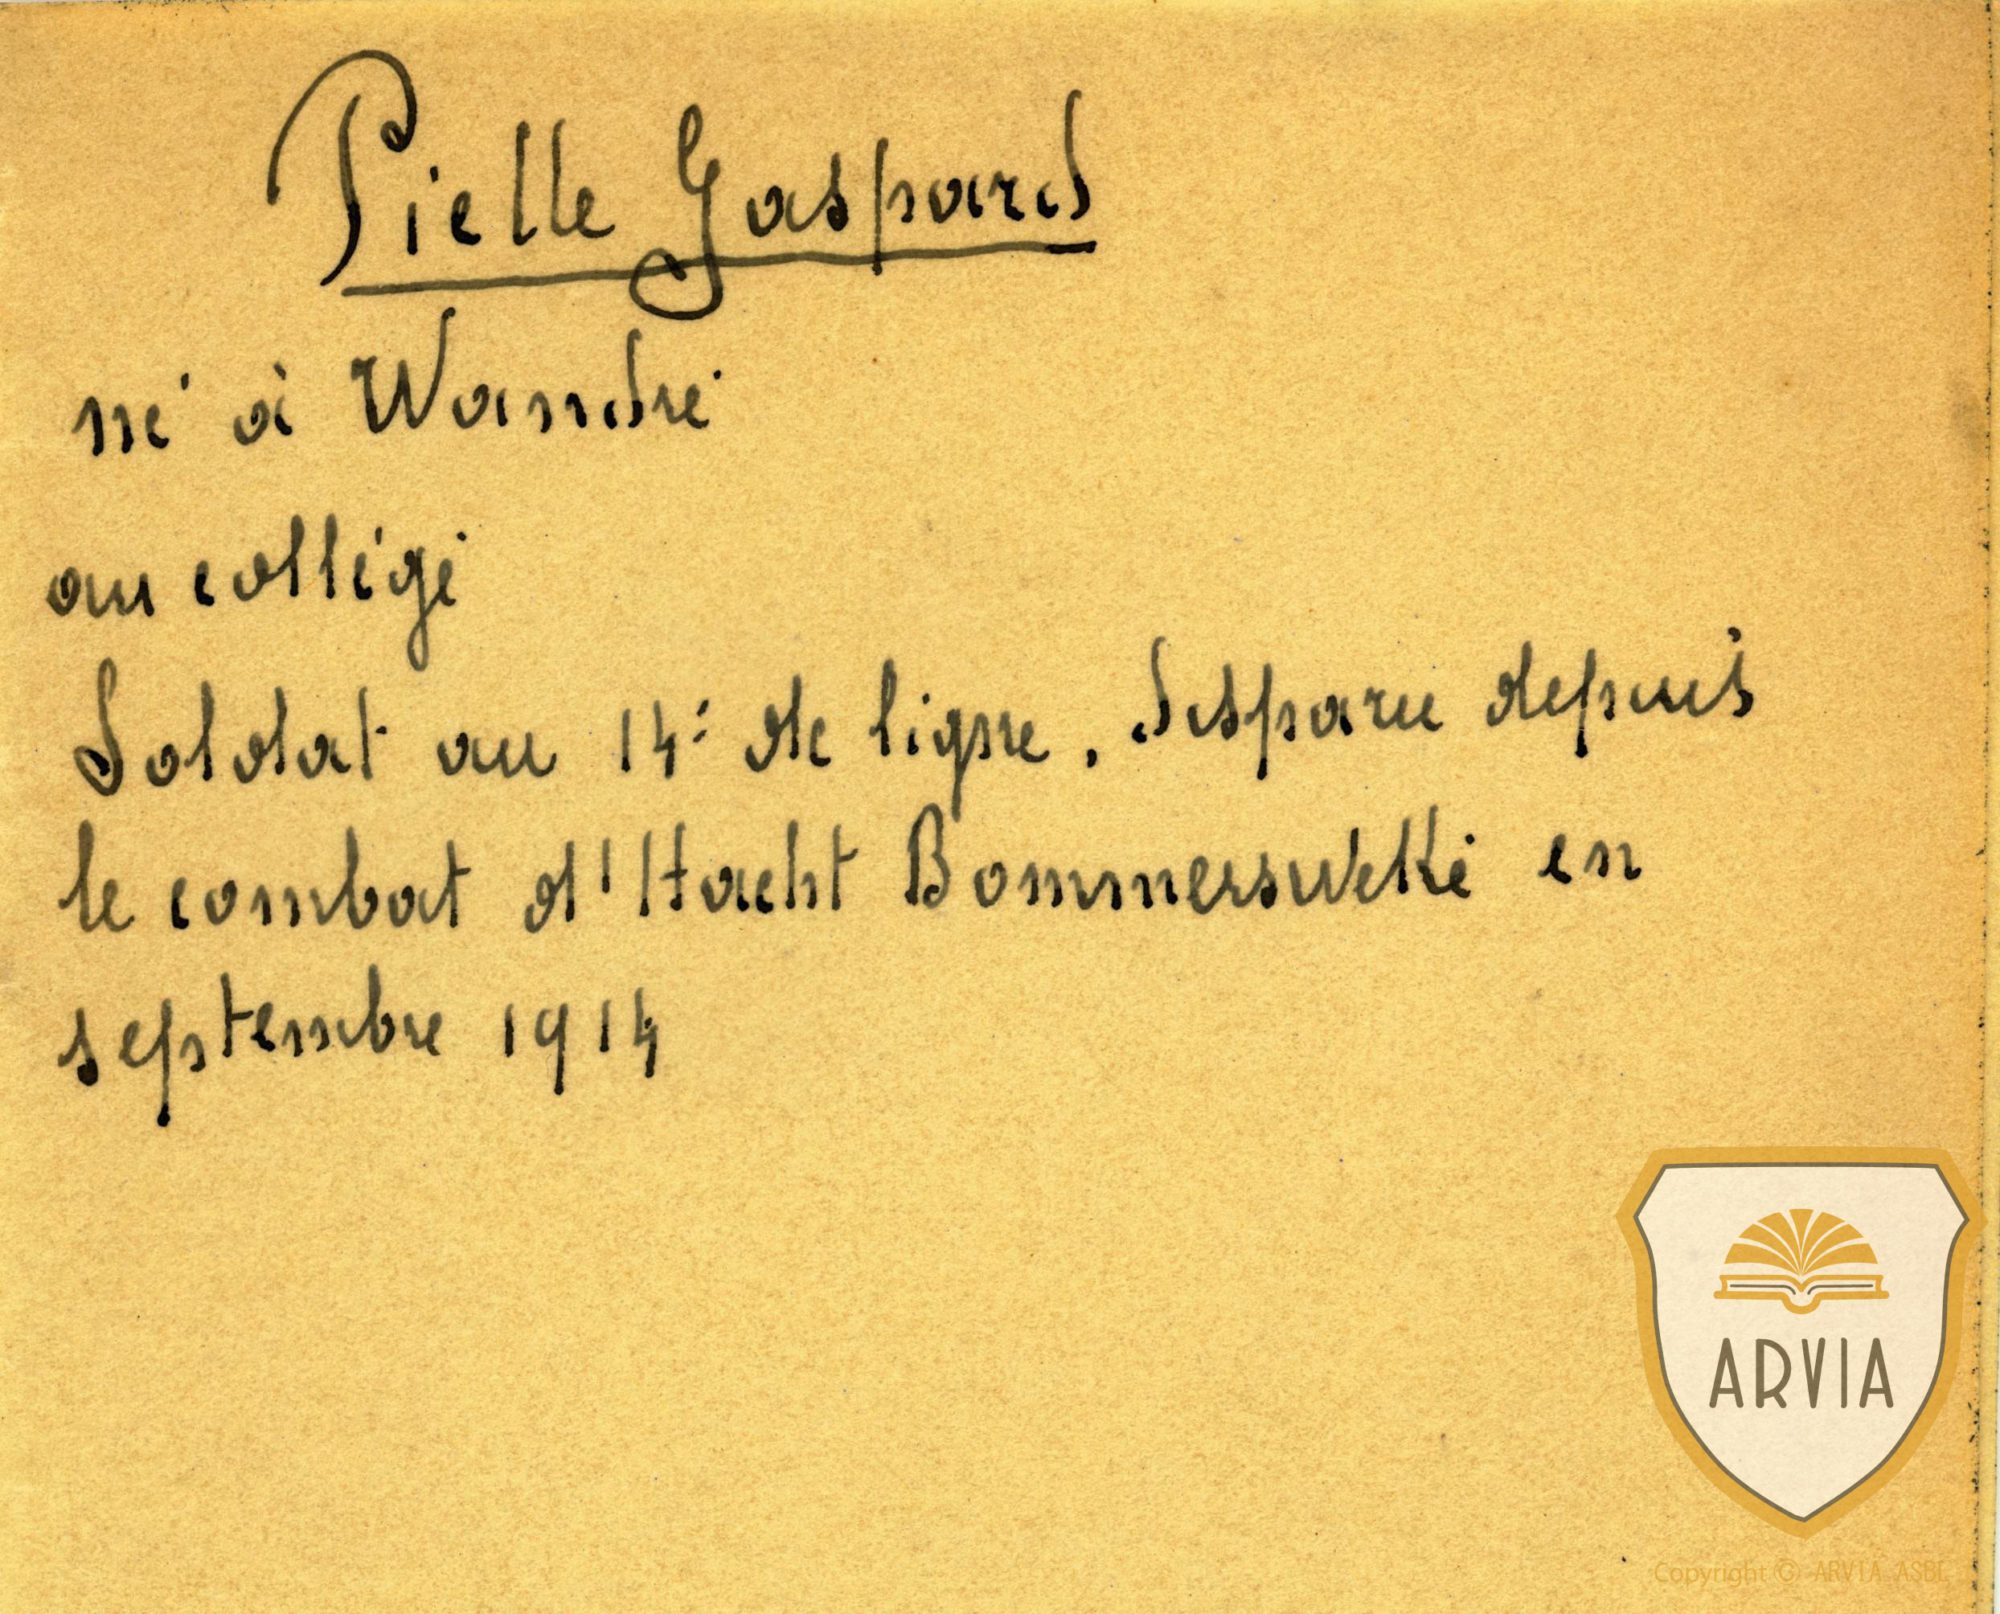 Pielle Gaspard
né à Wandre
au collège
Soldat au 14e de ligne. Disparu depuis
le combat d'Hacht Bommersweke en
septembre 1914
ARVIA
Copyright © ARVIA ASBL